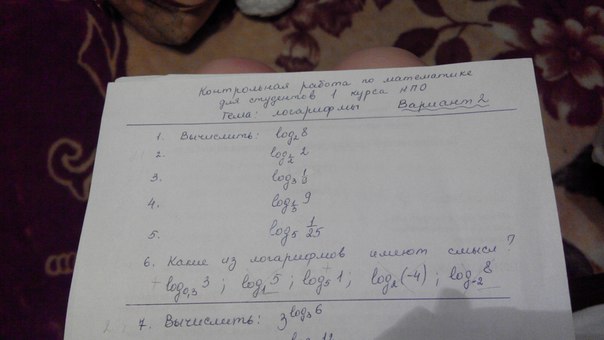 Контрольная работа по математике
для студентов 1 курса НПО
Тема: логарифмы Вариант 2
1. Вычислить: log₂8
2. log_{1/2} 2
3. log₃ 1/3
4. log_{1/3} 9
5. log₅ 1/25
6. Какие из логарифмов имеют смысл?
log_{0,3} 3 ; log₁5 ; log₅1 ; log₂(-4) ; log₋₂8
7. Вычислить: 3^{log₃6}